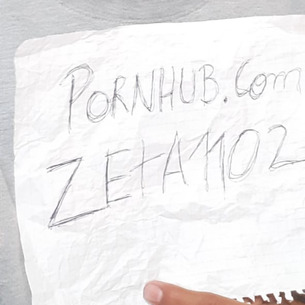 PORNHUB.Com
ZEtA1102